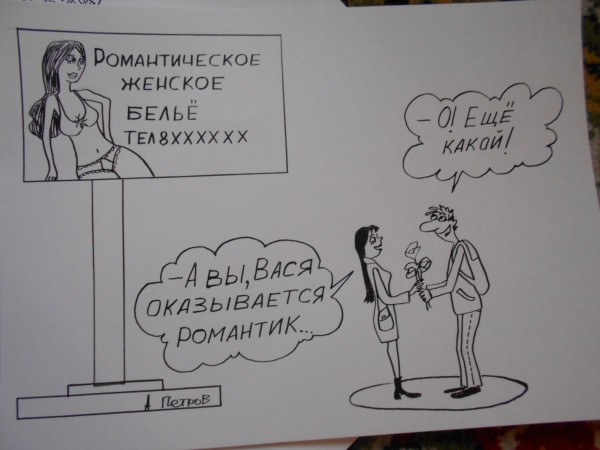 Романтическое
женское
бельё
тел 8xxxxxx
– О! Ещё
какой!
– А вы, Вася
оказывается
романтик...
А Петров